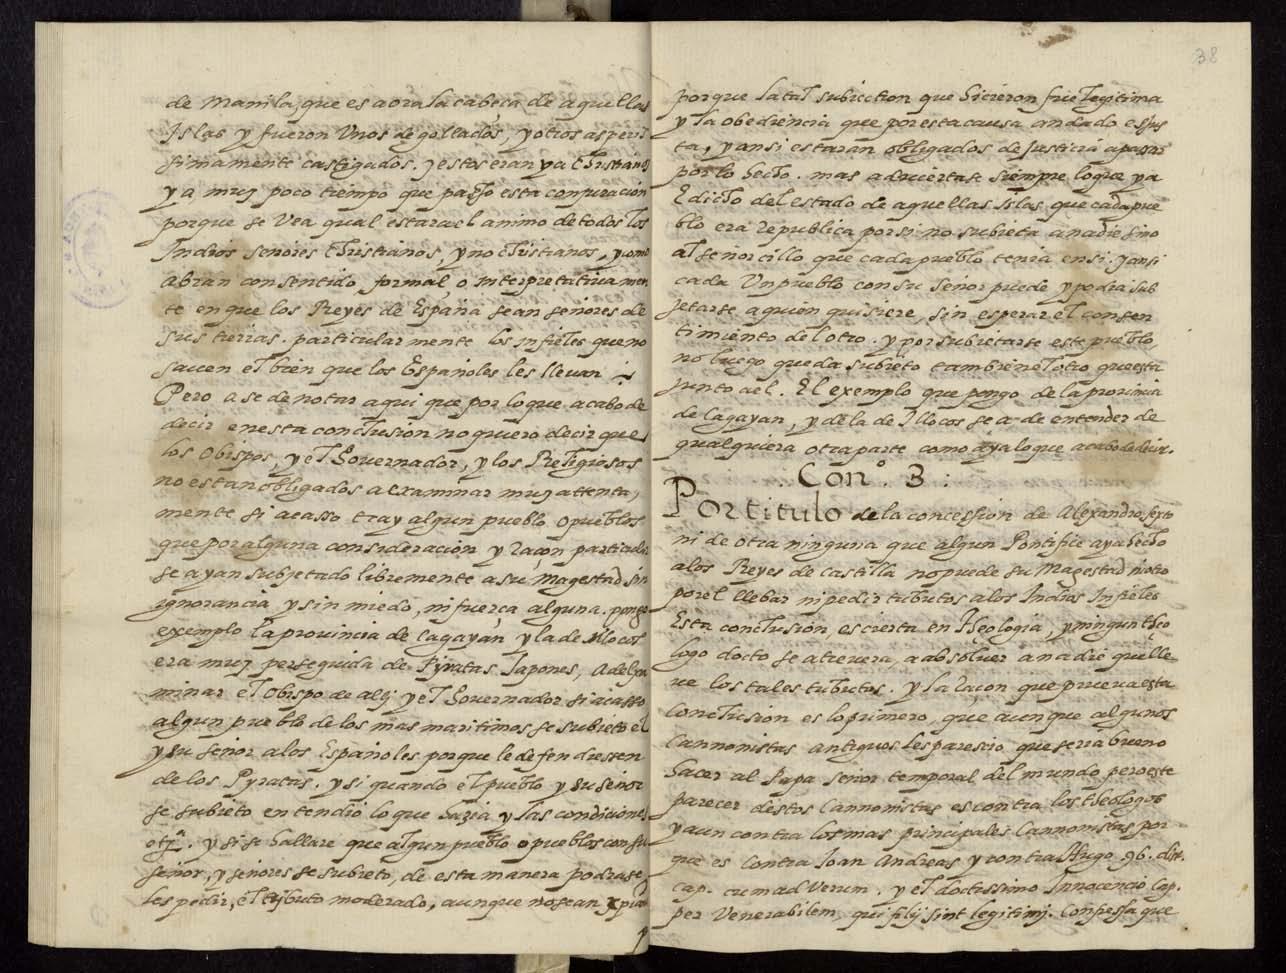 de Manila, que es aora la cabeça de aquellas
Islas y fueron Unos degollados, y otros asperis
simamente castigados. y estos eran ya Christianos
y a muy poco tiempo que passo esta conjuracion
porque se Vea qual estara el animo de todos los
Indios señores Christianos, y no christianos, y como
abran consentido, formal, o interpretativamen
te en que los Reyes de España sean señores de
sus tierras. particularmente los infieles que no
sauen el bien que los Españoles les lleuan
Pero a se de notar aqui que por lo que acabo de
decir en esta conclusion no quiero decir que
los Obispos, y el Gouernador, y los Religiosos
no estan obligados a examinar muy attenta,
mente si acasso tray algun pueblo, o pueblos
que por alguna consideracion y raçon particular
se ayan subjetado libremente a su Magestad sin
ignorancia y sin miedo, ni fuerça alguna. pongo
exemplo la prouincia de Cagayan y la de Illocos
era muy perseguida de Pyratas Japones, a de
minar el Obispo de alli y el Gouernador si acasso
algun pueblo de los mas maritimos se subieto el
y su señor a los Españoles porque le defendiessen
de los Pyratas. y si quando el pueblo y su señor
se subieto entendio lo que hazia y las condiciones
y si se hallare que algun pueblo o pueblos con su
señor, y señores se subieto, de esta manera podrase
les pedir, el tributo moderado, aunque no sean
38
porque la tal subiection que hicieron fue legitima
y la obediencia que por esta causa an dado es jus
ta, y ansi estaran obligados de justicia a pagar
por lo hecho. mas aduiertase siempre lo que ya
e dicho del estado de aquellas Islas que cada pue
blo era republica por si no subieta a nadie sino
al señorcillo que cada pueblo tenia en si. y ansi
cada Un pueblo con su señor puede y podra sub
jetarse a quien quisiere, sin esperar el consen
timiento del otro. y por subietarse este pueblo
no luego queda subieto tambien el otro que esta
junto a el. El exemplo que pongo de la prouincia
de Cagayan, y de la de Illocos se a de entender de
qualquiera otra parte como aya lo que acabo de decir.
Con.º 3 :
Por titulo de la concession de Alexandro sexto
ni de otra ninguna que algun Pontifice aya hecho
a los Reyes de castilla no puede su Magestad ni otro
por el llebar ni pedir tributos a los Indios Infieles
Esta conclusion, es cierta en Theologia, y ningun theo
logo docto se atreuera, a absoluer a nadie que lle
ue los tales tributos. y la raçon que prueua esta
conclusion es lo primero, que aunque algunos
Cannonistas antiguos les parescio, que seria bueno
hacer al Papa señor temporal del mundo pero este
parecer destos Cannonistas es contra los theologos
y aun contra los mas principales Cannonistas por
que es contra Joan Andreas y contra Hugo 96. dist.
cap. cum ad Verum. y el doctissimo Innocencio cap.
per Venerabilem, qui filij sint legitimi. Confessa que